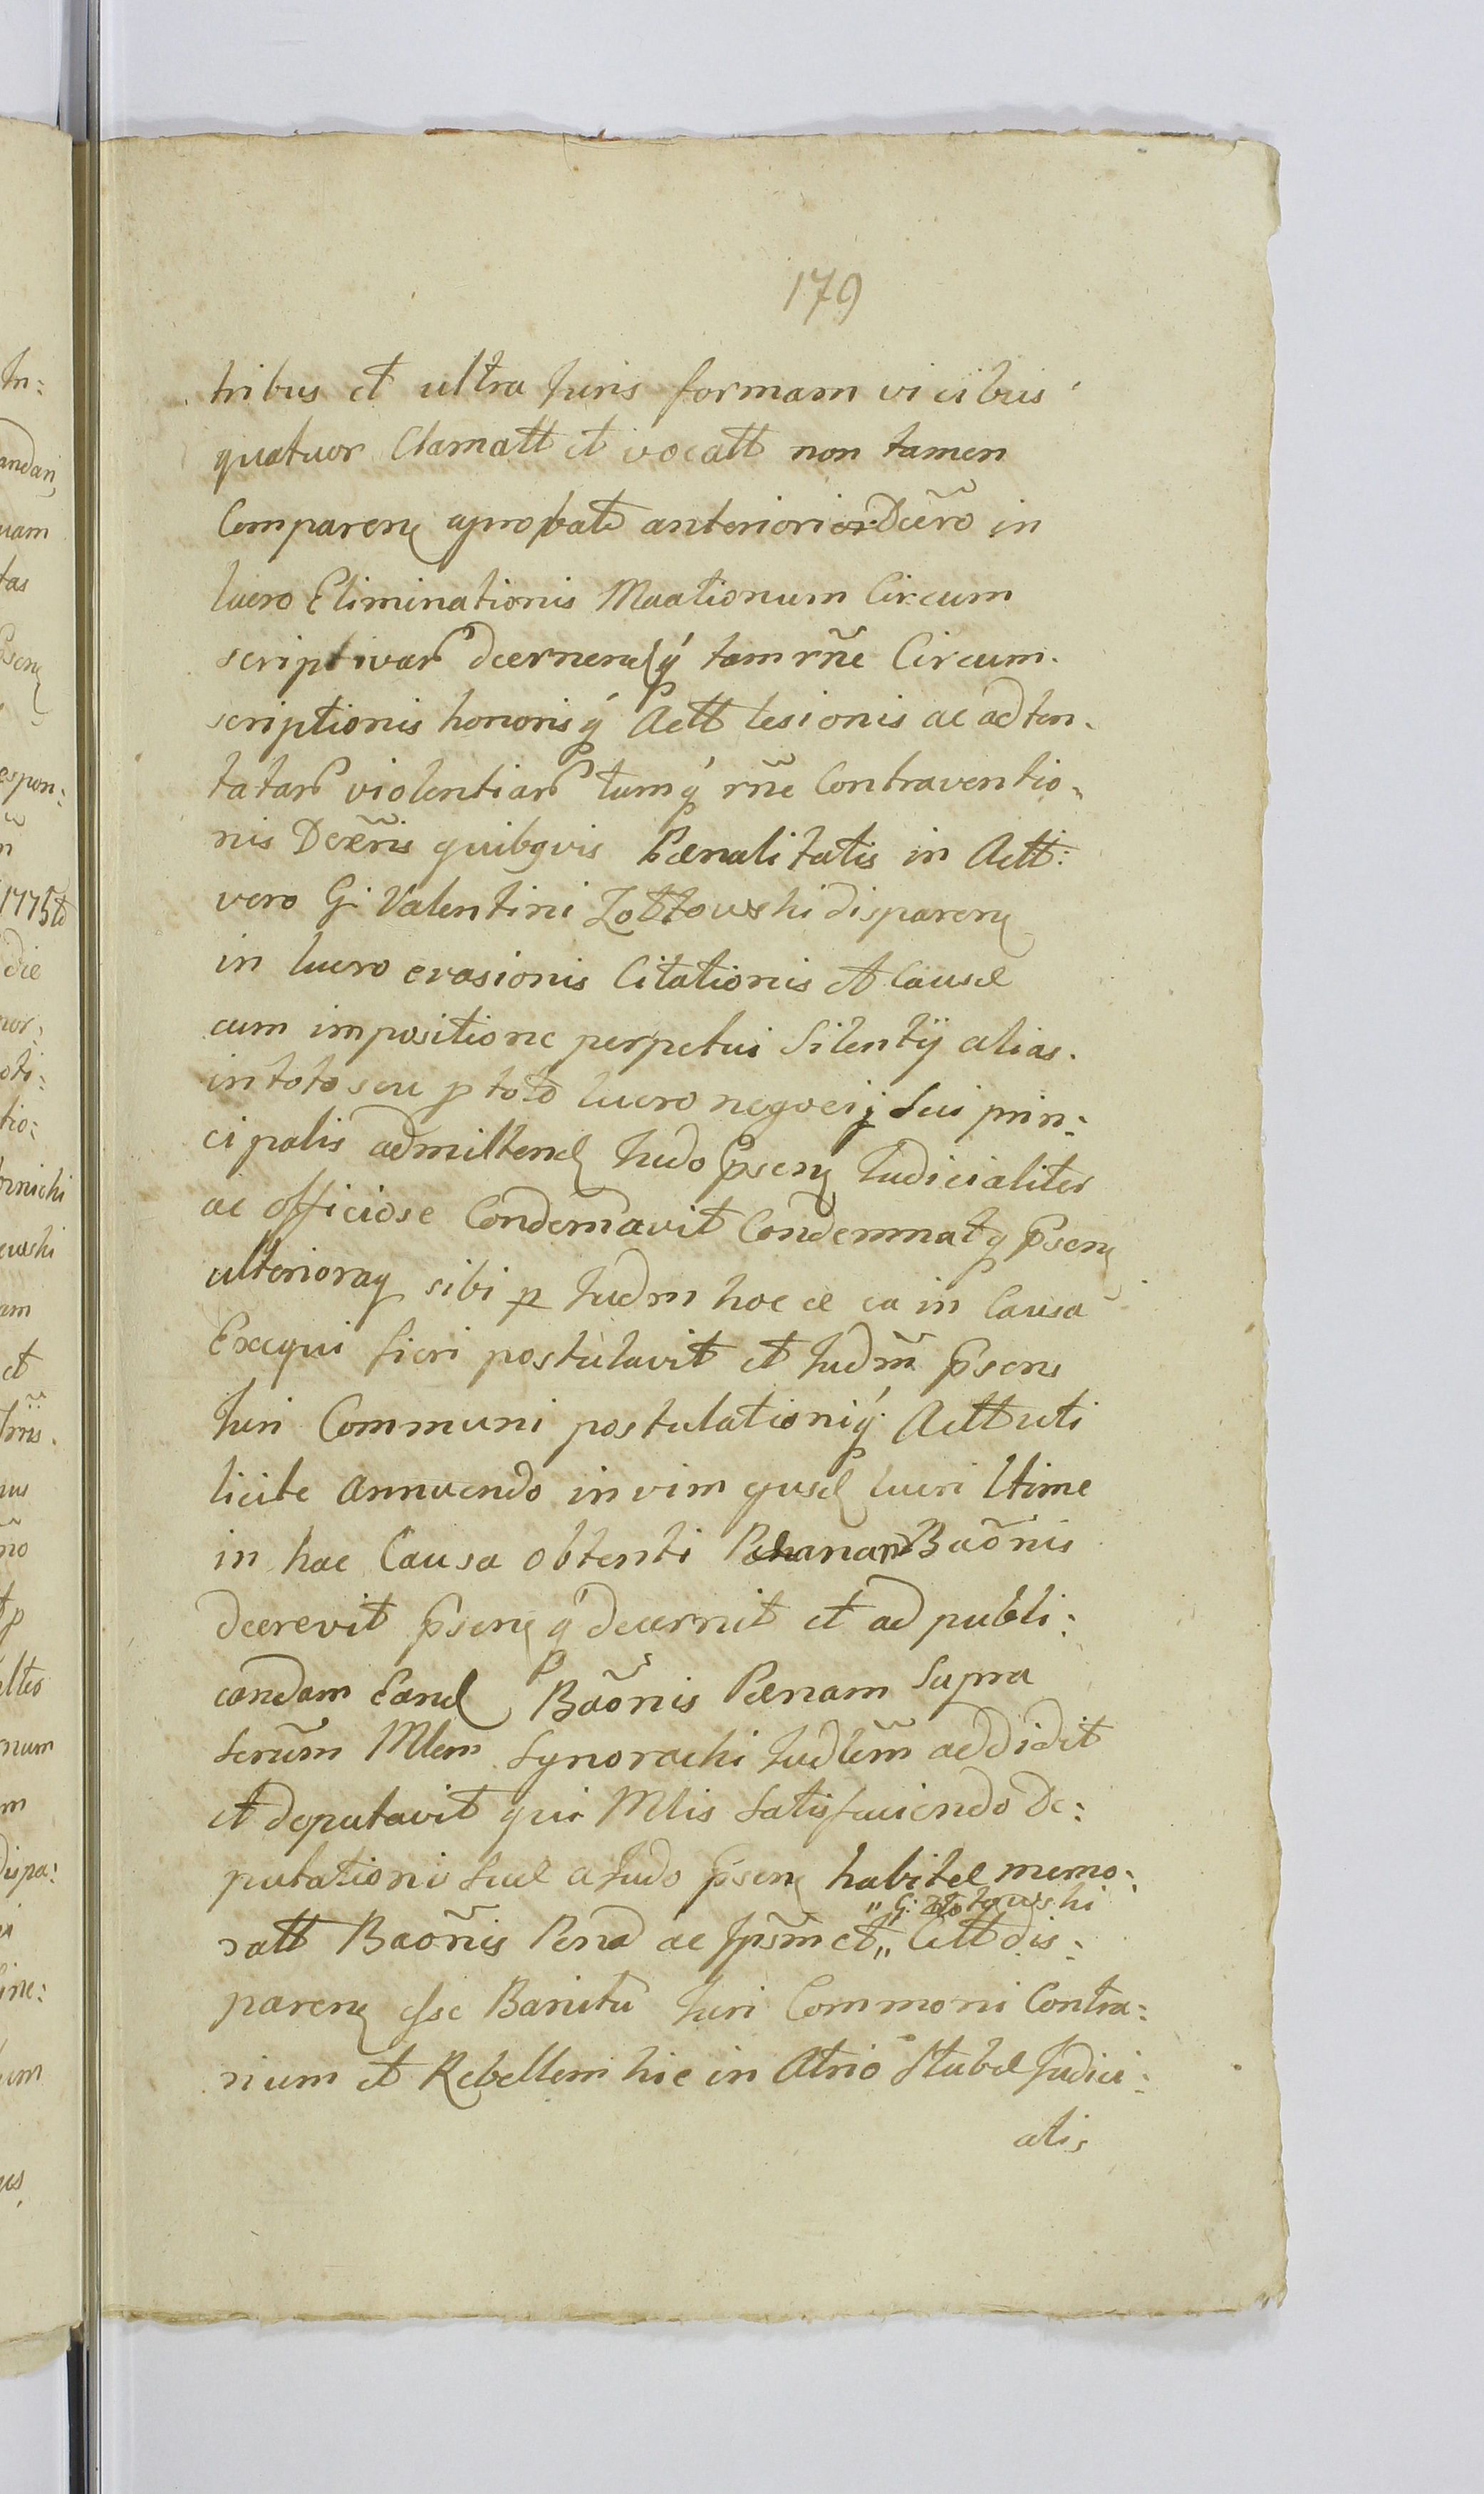 179
tribus et ultra Juris formam vicibus
quatuor Clamatt et vocatt non tamen
Comparen aprobato anteriori Decro in
lucro Eliminationis Maationum Circum
scriptivar decernend q tam rñe Circum.
scriptionis honoris q Actt lesionis ac adten.
tatar violentiar tum q rñe Contraventio.
nis Decris quibqvis Pænalitatis in Actt:
vero G. Valentini Zołtowski disparen
in lucro evasionis Citationis et Causæ
cum impositione perpetui Silentij alias.
in toto seu p toto lucro negocij Sui prin:
cipalis admittend Judo Psen Judicialiter
ac officiose Condemnavit Condemnat q Psen
ulterioraq sibi p Judm hoc ce ea in Causa
Exequi fieri postulavit et Judm Psens
Juri Communi postulationi q Actt uti
licite annuendo in vim ejusd lucri ltime
in hac Causa obtenti Baõnis
decrevit Psen q decernit et ad publi:
candam Eand Baõnis Pænam Supra
Scrum Mlem Synoracki Judlem addidit
et deputavit qui Mlis Satisfaciendo De:
putationi Suæ a Judo Psen habitæ memo:
" G: Zołtowski
ratt Baoñis Pena ac Ipsm et " Citt dis:
paren esse Banitu Juri Commoni Contra:
rium et Rebellem hic in Atrio Stubæ Judici:
alis